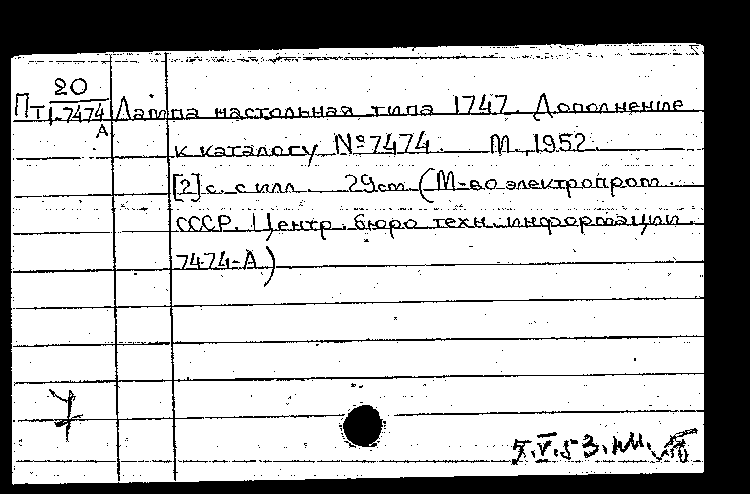 20
Пт 1-7474 Лампа настольная типа 1747. Дополнение
А
к каталогу №7474. М., 1952.
[2]с. с илл. 29см (М-во электропром.
СССР. Центр. бюро техн. информации.
7474-А)
7.V.53.